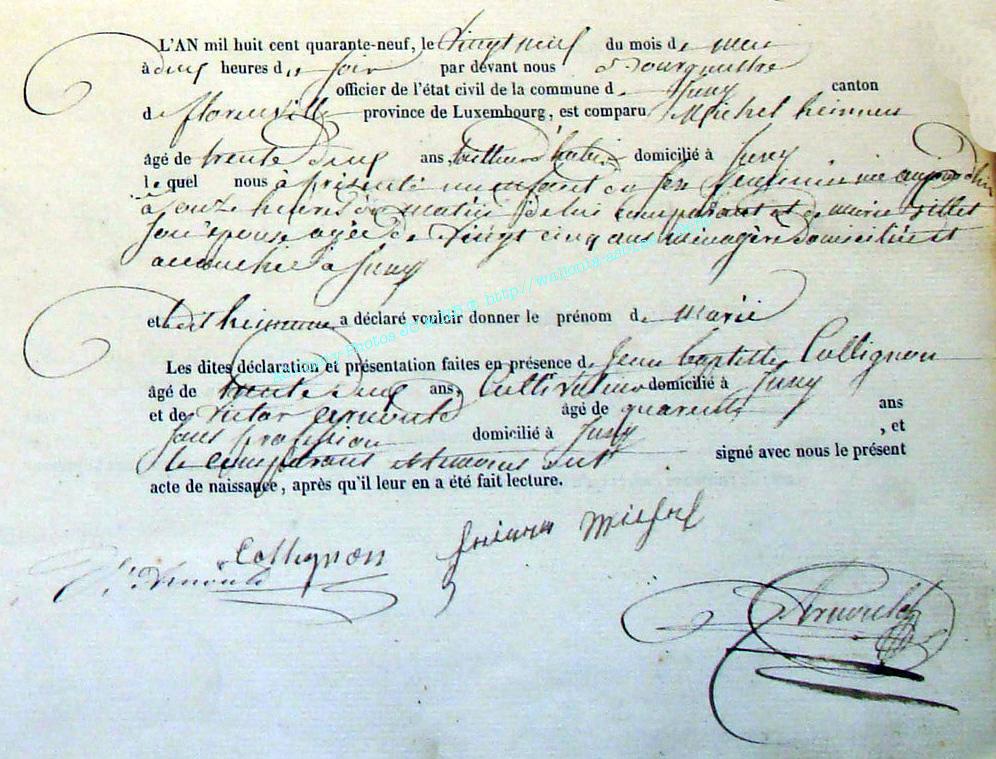 L'AN mil huit cent quarante-neuf, le vingt neuf du mois de mai
à deux heures du soir par devant nous Bourgmestre
officier de l'état civil de la commune de Suxy canton
de florenville province de Luxembourg, est comparu Michel heinnen
âgé de trente deux ans, domicilié à Suxy
lequel nous à présenté un enfant du sexe feminin née aujourd'hui
à onze heures du matin de lui comparant et de marie Gillet
son épouse agée de vingt cinq ans ménagère domiciliée et
accouchée à Suxy
et a déclaré vouloir donner le prénom de marie
Les dites déclaration et présentation faites en présence de Jean baptiste Collignon
âgé de trente deux ans, Cultivateur domicilié à Suxy
et de Victor arnould âgé de quarante ans
sans profession domicilié à Suxy , et
le comparant et temoins ont signé avec nous le présent
acte de naissance, après qu'il leur en a été fait lecture.
Collignon Michel
Vr Arnould
Arnould
http://wallonia-as